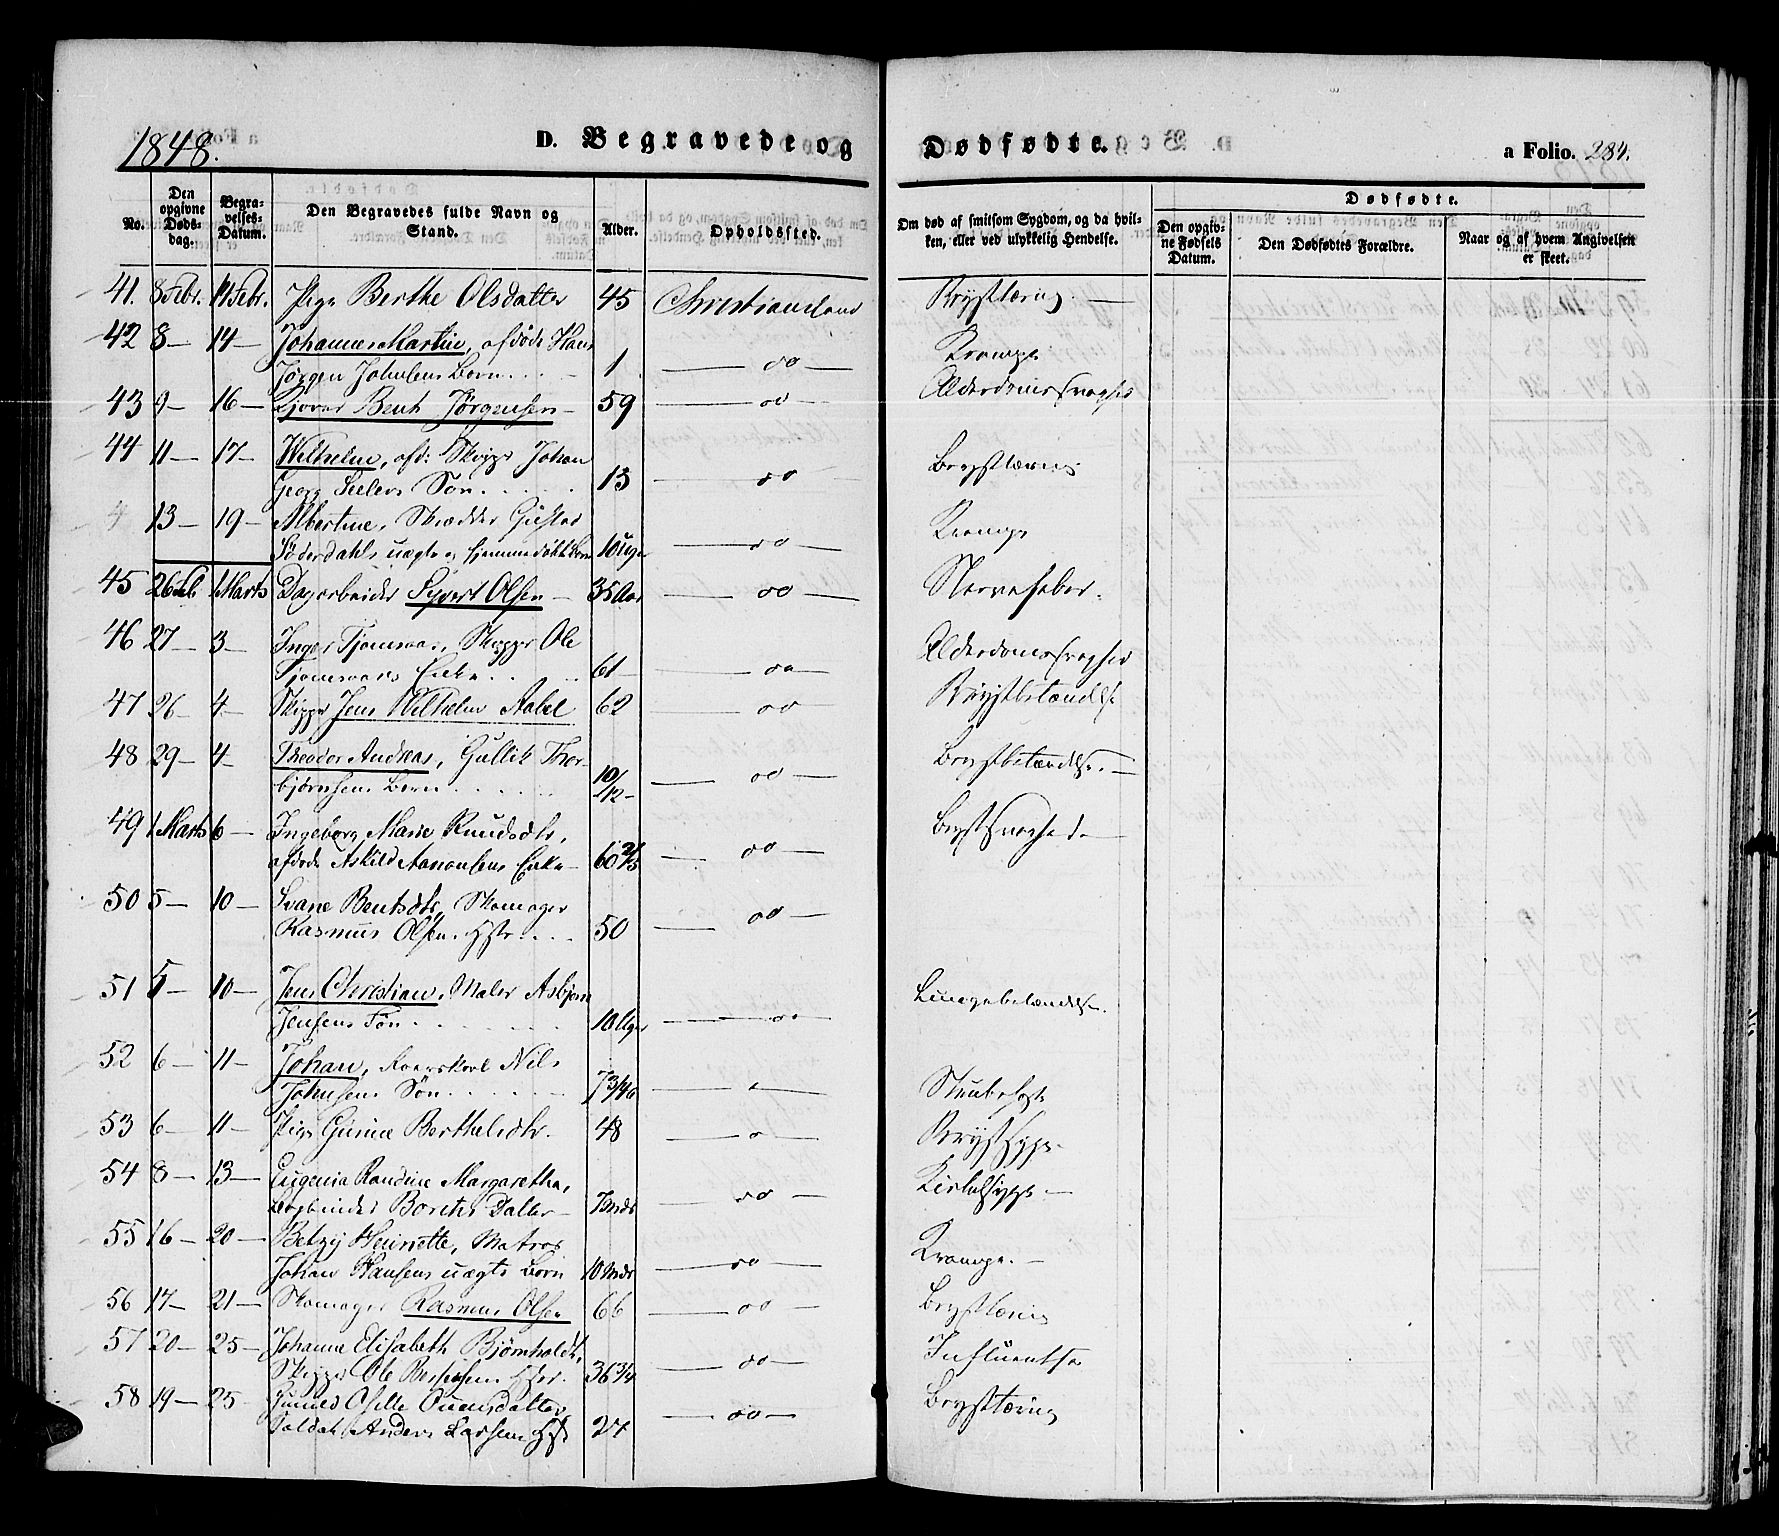 1848.
D. Begravede og Dødfødte. a Folio. 284.
No. Den opgivne Døds-dag. Begra-velses-Datum. Den Begravedes fulde Navn og Stand. Alder. Opholdssted. Om død af smitsom Sygdom, og da hvil-ken, eller ved ulykkelig Hendelse. Dødfødte. Den opgiv-ne Fødsels Datum. Den Dødfødtes Forældre. Naar og af hvem Angivelsen er skeet.
41. 8 Febr. 11 Febr. Pige Berthe Olsdatter 45 Christiansand Brysttæring
42 8 — 14 — Johanne Martine, afdøde Hans
Jørgen Johnsens Barn 1 — do — Krampe
43 9 — 16 — Bent Jørgensen — 59 — do — Alderdomssvaghed
44 11 — 17 — Wilhelm, afd: Skipper Johan
Georg Seelers Søn 13 — do — Brysttæring
4 13 — 19 — Albertine, Skrædder Gustav
Söderdahls uægte og hjemmedøbt Barn 10 Uger — do — Krampe
45 26 Feb 1 Marts Dagarbeider Syvert Olsen — 35 Aar — do — Nervefeber.
46 27 — 3 — Inger Tjomsaas, Skipper Ole
Tjomsaas Enke 61 — do — Alderdomssvaghed
47 26 — 4 — Skipper Jens Wilhelm Aabel 62 — do — Brystbetændelse
48 29 — 4 — Theodor Andreas, Gullik Thor-
bjørnsens Barn 10/12 — do — Brystbetændelse.
49 1 Marts 6 — Ingeborg Marie Knudsdtr,
afdøde Askild Aanonsens Enke — 60 — do — Brystsvaghed
50 5 — 10 — Svane Bentsdtr, Skomager
Rasmus Olsens Hstr 50 — do —
51 5 — 10 — Jens Christian, Maler Asbjørn
Jensens Søn 10 Uger — do — Lungebetændelse.
52 6 — 11 — Johan, Nils
Johnsens Søn 7 3/4 — Strubehoste
53 6 — 11 — Pige Gurine Berthelsdtr. 48 — Brystsyge
54 8 — 13 — Eugenia Randine Margaretha,
Bogbinder Borchs Datter — 7 Mdr — do — Kirtelsyge
55 16 — 20 — Betzy Henriette, Matros
Johan Hansens uægte Barn 10 Mdr — do — Krampe.
56 17 — 21 — Skomager Rasmus Olsen 66 — do — Brysttæring
57 20 — 25 — Johanne Elisabeth Bjørnholdt,
Skipper Ole Hstr. 36 3/4 — do — Influentsa
58 19 — 25 Gunild Oselle Omundsdatter
Soldat Anders Larsens Hst 27 — do — Brysttæring